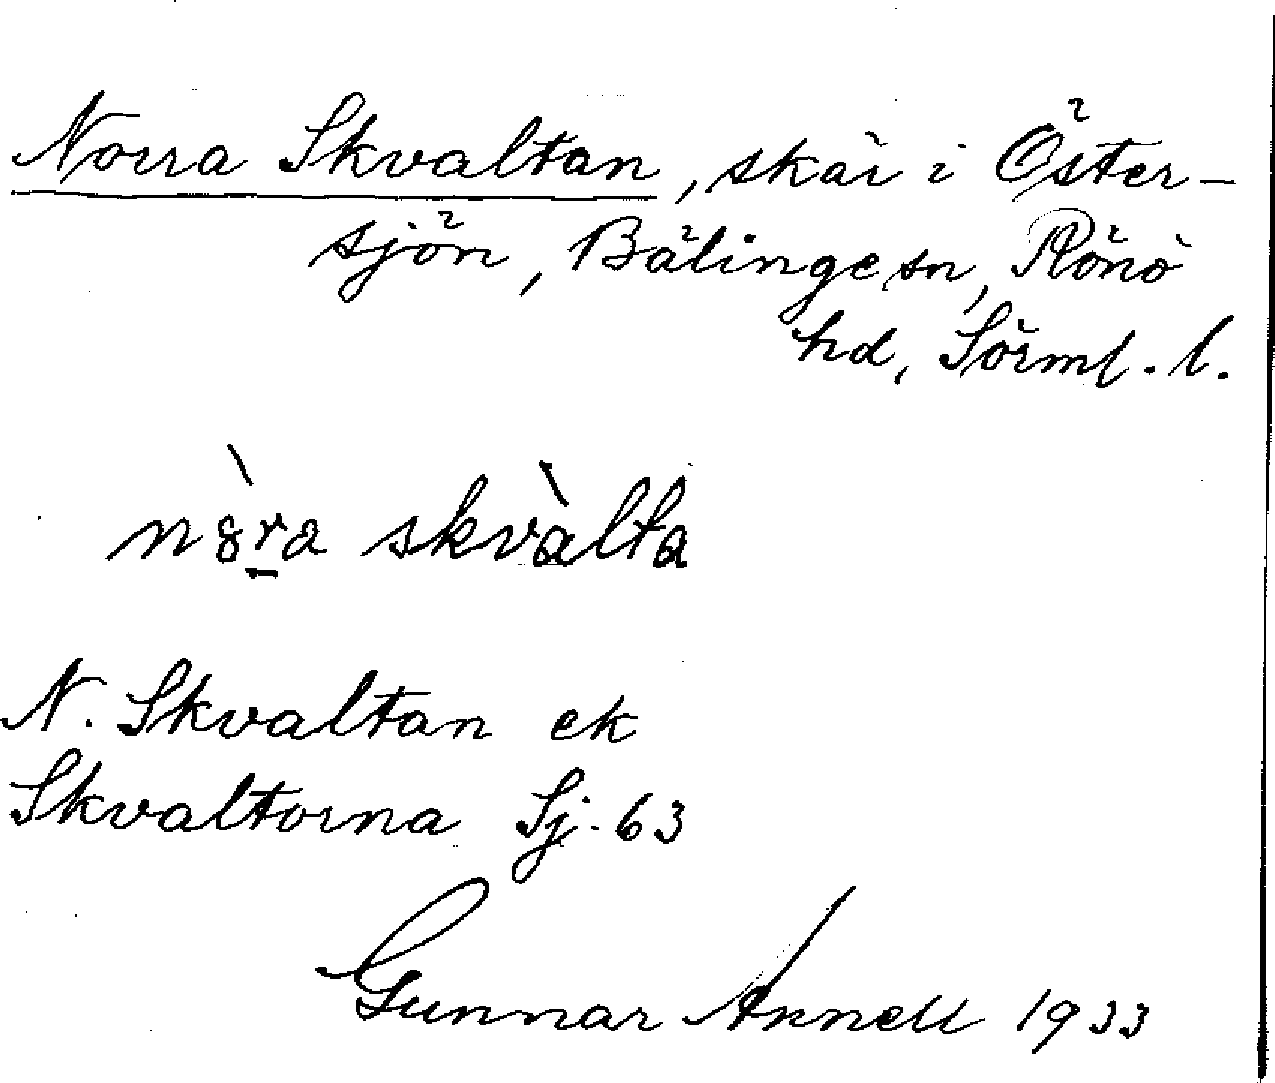 Norra Skvaltan, skär i Öster-
sjön, Bälinge sn, Rönö
hd, Sörml. l.
nȣ̀ra skvàlta
N. Skvaltan ek
Skvaltorna Sj. 63
Gunnar Annell 1933